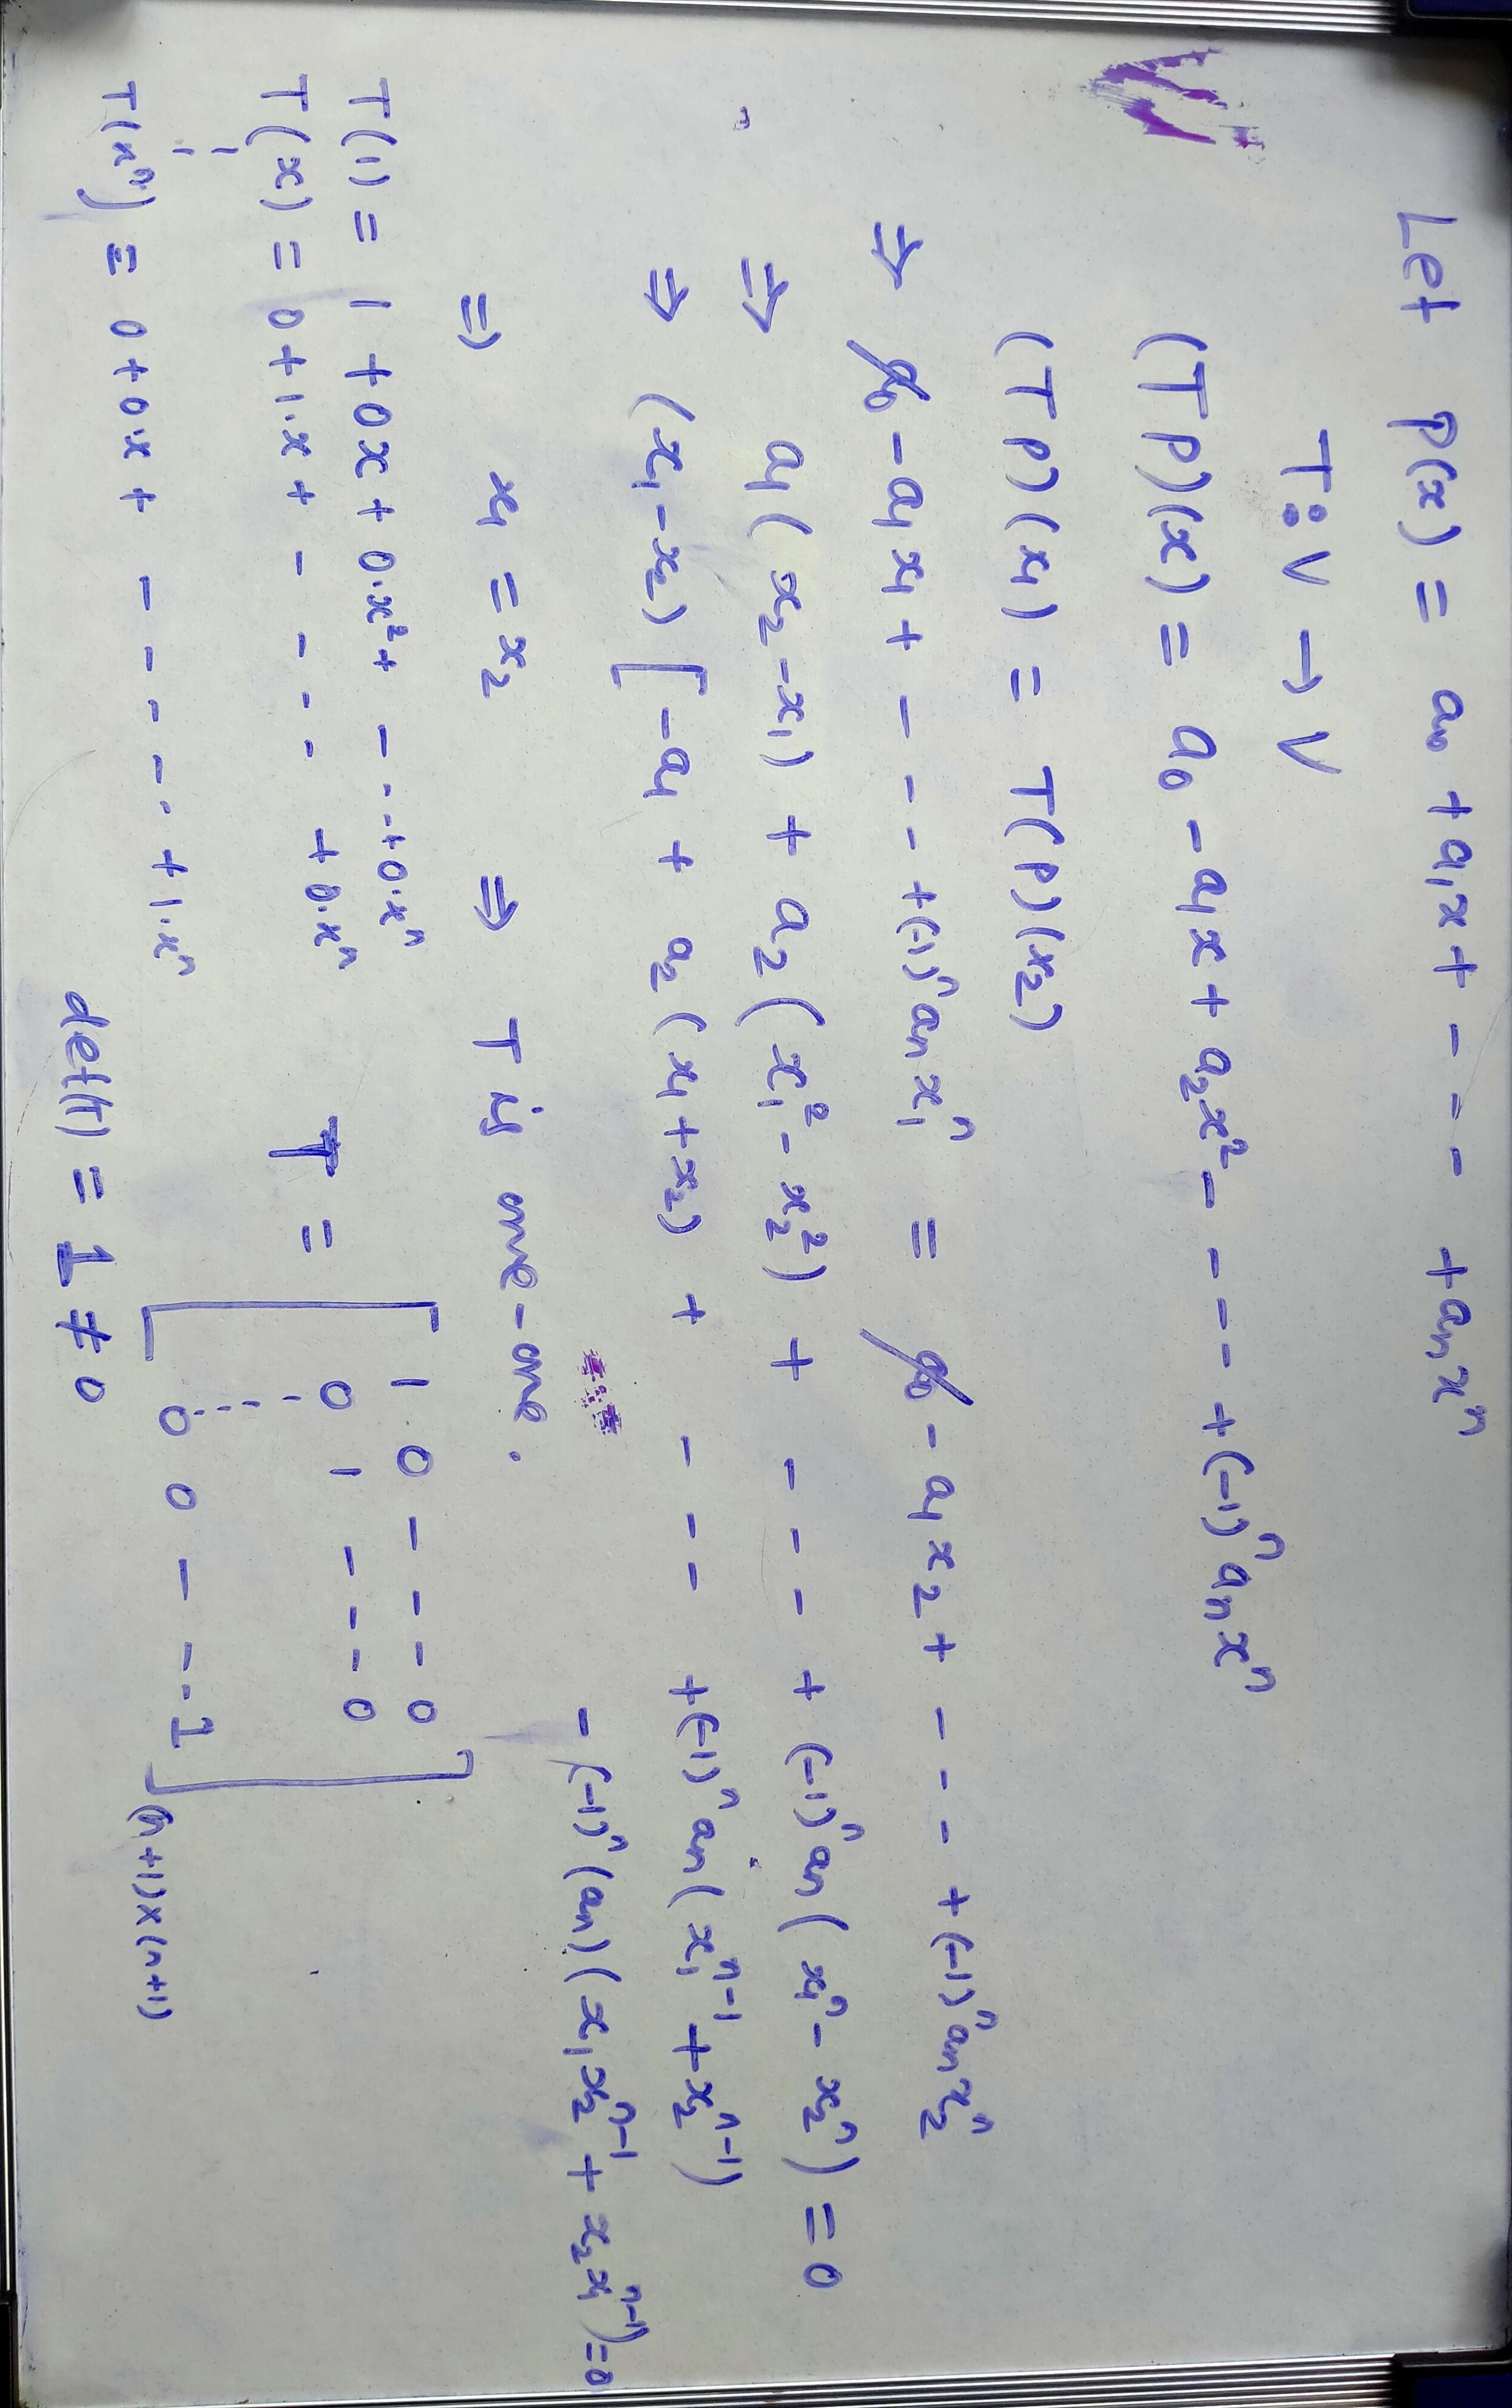 Let P(x) = a₀ + a₁x + - - - + aₙxⁿ
T : V → V
(TP)(x) = a₀ - a₁x + a₂x² - - - - + (-1)ⁿ aₙxⁿ
(TP)(x₁) = T(P)(x₂)
⇒ a₀ - a₁x₁ + - - - + (-1)ⁿ aₙx₁ⁿ = a₀ - a₁x₂ + - - - + (-1)ⁿ aₙx₂ⁿ
⇒ a₁(x₂ - x₁) + a₂(x₁² - x₂²) + - - - + (-1)ⁿ aₙ(x₁ⁿ - x₂ⁿ) = 0
⇒ (x₁ - x₂) [-a₁ + a₂(x₁ + x₂) + - - - + (-1)ⁿ aₙ(x₁ⁿ⁻¹ + x₂ⁿ⁻¹)
- (-1)ⁿ (aₙ)(x₁x₂ⁿ⁻¹ + x₂x₁ⁿ⁻¹) = 0
⇒ x₁ = x₂ ⇒ T is one-one.
T(1) = 1 + 0x + 0.x² + - - - + 0.xⁿ
T(x) = 0 + 1.x + - - - - + 0.xⁿ
T(xⁿ) = 0 + 0.x + - - - - - + 1.xⁿ
T = [ 1 0 - - - 0
0 1 - - - 0
0 0 - - - 1 ](n+1)×(n+1)
det(T) = 1 ≠ 0